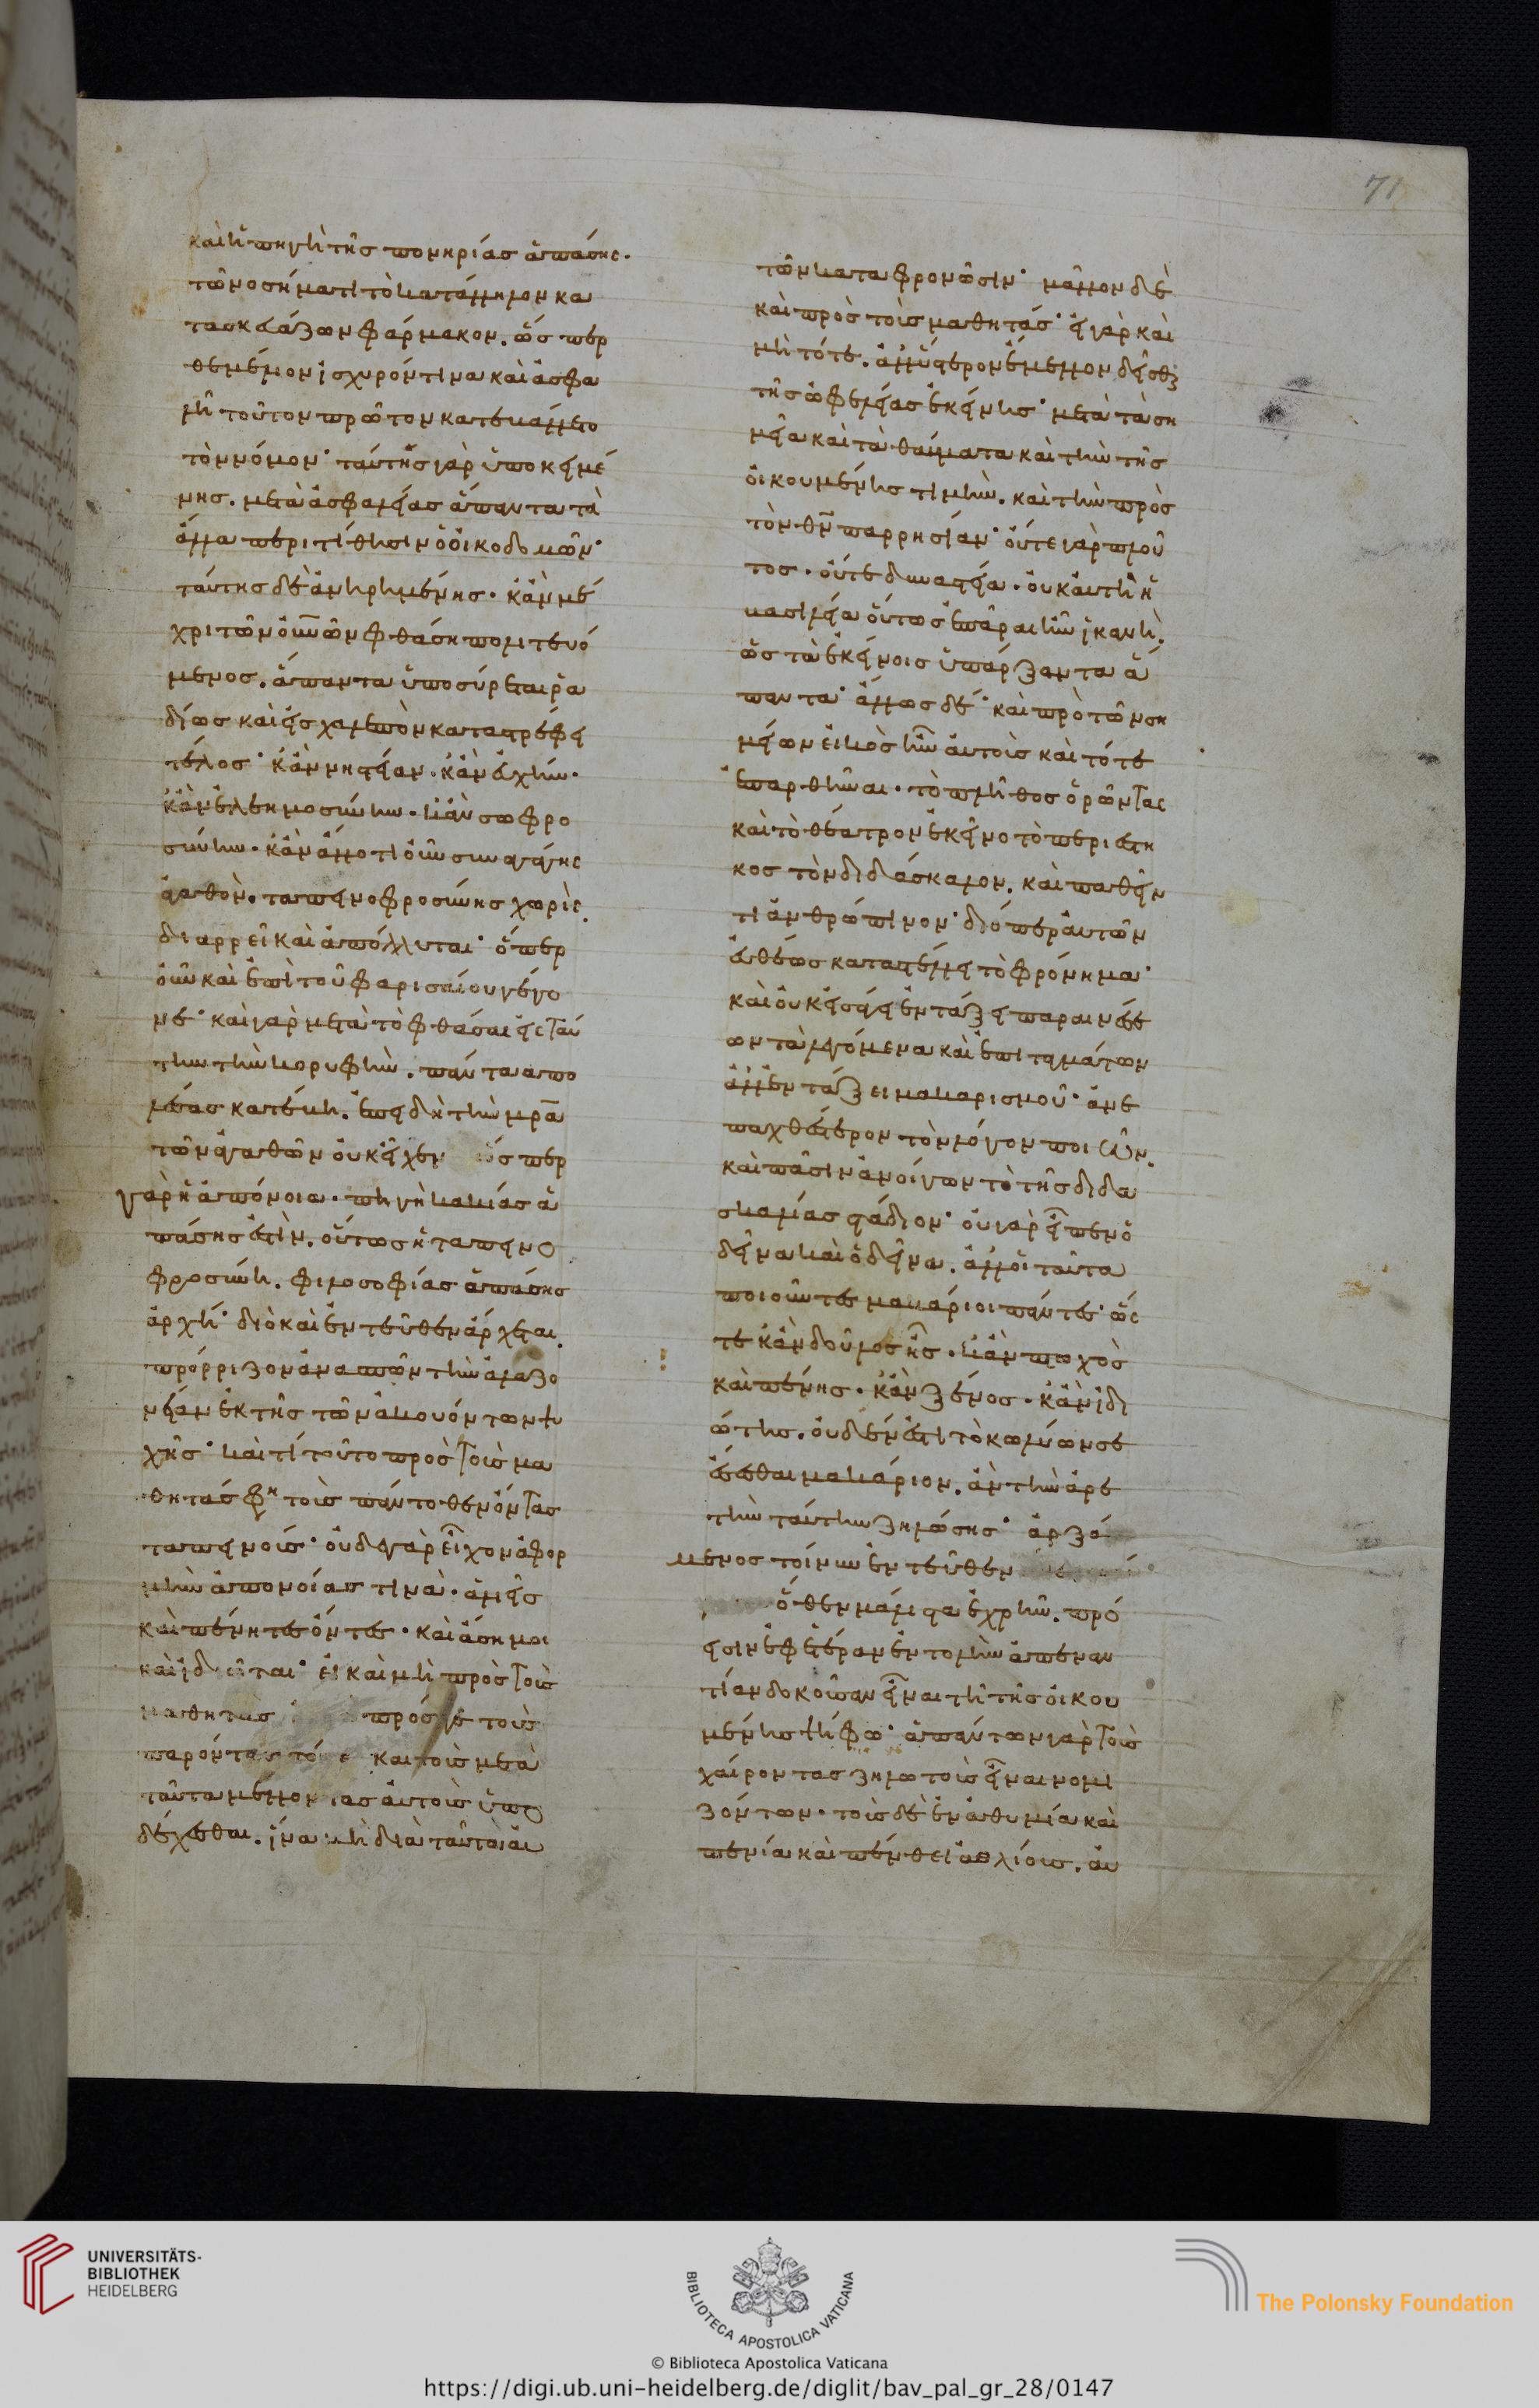 71
καὶ ἡ πηγὴ τῆς πονηρίας ἁπάσης.
τῶ νοσήματι τὸ κατάλληλον κα
τασκευάζων φάρμακον. ὥσπερ
θεμέλιον ἰσχυρόν τινα καὶ ἀσφα
λῆ τοῦτον πρῶτον κατεβάλλετο
τὸν νόμον· ταύτης γὰρ ὑποκειμέ
νης. μετὰ ἀσφαλείας ἅπαντα τὰ
ἄλλα περιτίθησιν ὁ οἰκοδομῶν·
ταύτης δὲ ἀνῃρημένης. κἂν μέ
χρι τῶν οὐνῶν φθάσῃ πολιτευό
μενος. ἅπαντα ὑποσύρεται ῥα
δίως καὶ εἰς χαλεπὸν καταστρέφει
τέλος· κἂν νηστείαν. κἂν εὐχήν.
κἂν ἐλεημοσύνην. κἂν σωφρο
σύνην. κἂν ἄλλο τι οὖν συναγάγῃς
ἀγαθόν. ταπεινοφροσύνης χωρὶς.
διαρρεῖ καὶ ἀπόλλυται· ὅπερ
οὖν καὶ ἐπὶ τοῦ φαρισαίου γέγο
νε· καὶ γὰρ μετὰ τὸ φθάσαι εἰς ταύ
την τὴν κορυφὴν. πάντα ἀπο
λέσας κατέβη. ἐπειδὴ τὴν μρᾶ
τῶν ἀγαθῶν οὐκ εἶχεν ὥσπερ
γὰρ ἡ ἀπόνοια. πηγὴ κακίας ἁ
πάσης ἐστὶν. οὕτως ἡ ταπεινο
φροσύνη. φιλοσοφίας ἁπάσης
ἀρχή· διὸ καὶ ἐντεῦθεν ἄρχεται.
πρόρριζον ἀνασπῶν τὴν ἀλαζο
νείαν ἐκ τῆς τῶν ἀκουόντων ψυ
χῆς· καὶ τί τοῦτο πρὸς τοὺς μα
θητάς φη τοὺς πάντοθεν ὄντας
ταπεινούς· οὐδὲ γὰρ εἶχον ἀφορ
μὴν ἀπονοίας τινὰ. ἁλιεῖς
καὶ πένητες ὄντες. καὶ ἄσημοι
καὶ ἰδιῶται· εἰ καὶ μὴ πρὸς τοὺς
μαθητὰς πρός γε τοὺς
παρόντας τότε καὶ τοὺς μετὰ
ταῦτα μέλλοντας αὐτοὺς ὑπο
δέχεσθαι. ἵνα μὴ διὰ ταῦτα αὐ
τῶν καταφρονῶσιν· μᾶλλον δὲ
καὶ πρὸς τοὺς μαθητάς· εἰ γὰρ καὶ
μὴ τότε. ἀλλ' ὕστερον ἔμελλον δεῖσθαι
τῆς ὠφελείας ἐκείνης· μετὰ τὰ ση
μεῖα καὶ τὰ θαύματα καὶ τὴν τῆς
οἰκουμένης τιμὴν. καὶ τὴν πρὸς
τὸν θν παρρησίαν· οὔτε γὰρ πλοῦ
τος. οὔτε δυναστεία. οὐκ αὐτὴ ἡ
βασιλεία οὕτως ἐπᾶραι ἦν ἱκανὴ.
ὡς τὰ ἐκείνοις ὑπάρξαντα ἅ
παντα· ἄλλως δέ· καὶ πρὸ τῶν ση
μείων εἰκὸς ἦν αὐτοὺς καὶ τότε
ἐπαρθῆναι. τὸ πλῆθος ὁρῶντας
καὶ τὸ θέατρον ἐκεῖνο τὸ περιεστη
κος τὸν διδάσκαλον. καὶ παθεῖν
τι ἀνθρώπινον· διόπερ αὐτῶν
εὐθέως καταστέλλει τὸ φρόνημα·
καὶ οὐκ εἰσάγει ἐν τάξει παραινέσε
ων τὰ λεγόμενα καὶ ἐπιταγμάτων
ἀλλ' ἐν τάξει μακαρισμοῦ· ἀνε
παχθέστερον τὸν λόγον ποιῶν.
καὶ πᾶσιν ἀνοίγων τὸ τῆς διδα
σκαλίας στάδιον· οὐ γὰρ εἶπεν ὁ
δεῖνα καὶ ὁ δεῖνα. ἀλλ' οἱ ταῦτα
ποιοῦντες μακάριοι πάντες· ὥσ
τε κἂν δοῦλος ᾖς. κἂν πτωχὸς
καὶ πένης. κἂν ξένος. κἂν ἰδι
ώτης. οὐδέν ἐστι τὸ κωλύων σε
ἔσεσθαι μακάριον. ἂν τὴν ἀρε
τὴν ταύτην ζηλώσῃς· ἀρξά
μενος τοίνυν ἐντεῦθεν
ὅθεν μάλιστα ἐχρῆν. πρό
εισιν ἐφ' ἑτέραν ἐντολὴν ἀπεναν
τίαν δοκοῦσαν εἶναι τῆ τῆς οἰκου
μένης ψήφω· ἁπάντων γὰρ τοὺς
χαίροντας ζηλωτοὺς εἶναι νομι
ζόντων. τοὺς δὲ ἐν ἀθυμία καὶ
πενία καὶ πένθει ἀθλίους. αὐ
UNIVERSITÄTS-
BIBLIOTHEK
HEIDELBERG
BIBLIOTECA APOSTOLICA VATICANA
The Polonsky Foundation
© Biblioteca Apostolica Vaticana
https://digi.ub.uni-heidelberg.de/diglit/bav_pal_gr_28/0147